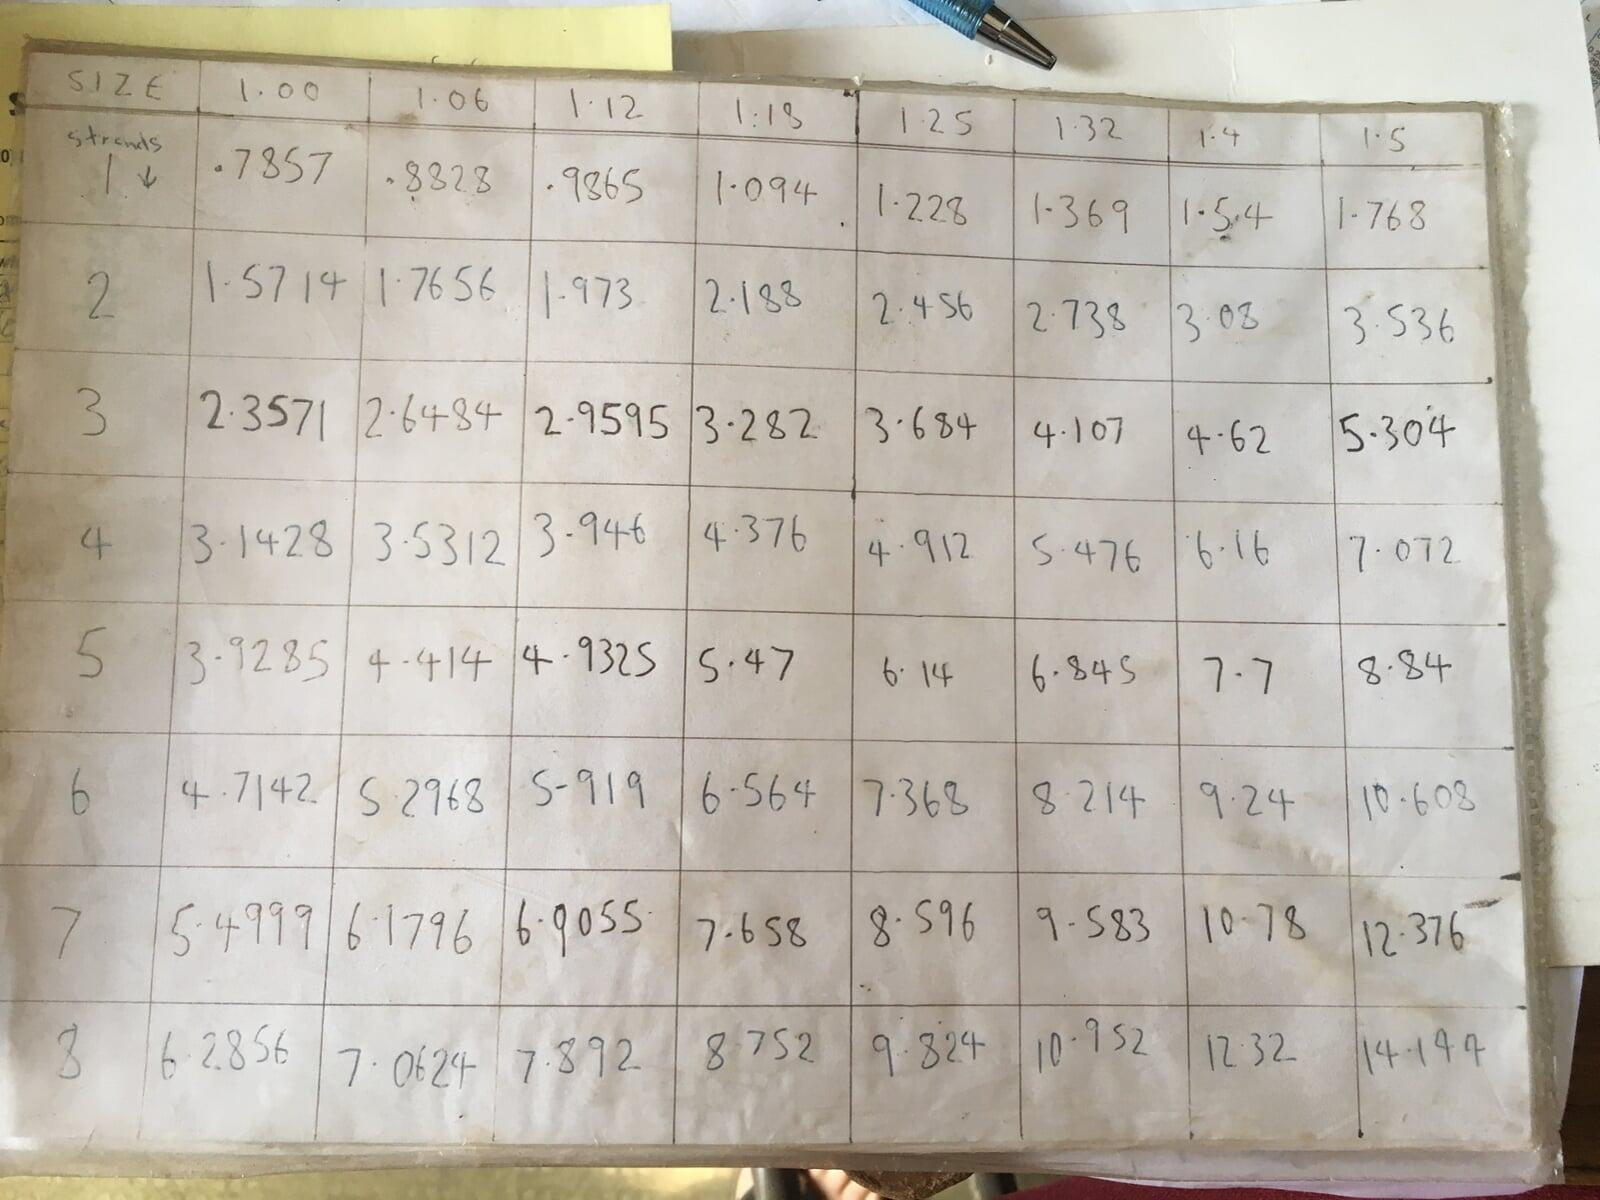 SIZE 1.00 1.06 1.12 1.18 1.25 1.32 1.4 1.5
strands
1 ↓ .7857 .8828 .9865 1.094 1.228 1.369 1.54 1.768
2 1.5714 1.7656 1.973 2.188 2.456 2.738 3.08 3.536
3 2.3571 2.6484 2.9595 3.282 3.684 4.107 4.62 5.304
4 3.1428 3.5312 3.946 4.376 4.912 5.476 6.16 7.072
5 3.9285 4.414 4.9325 5.47 6.14 6.845 7.7 8.84
6 4.7142 5.2968 5-919 6.564 7.368 8.214 9.24 10.608
7 5.4999 6.1796 6.9055 7.658 8.596 9.583 10.78 12.376
8 6.2856 7.0624 7.892 8.752 9.824 10.952 12.32 14.144